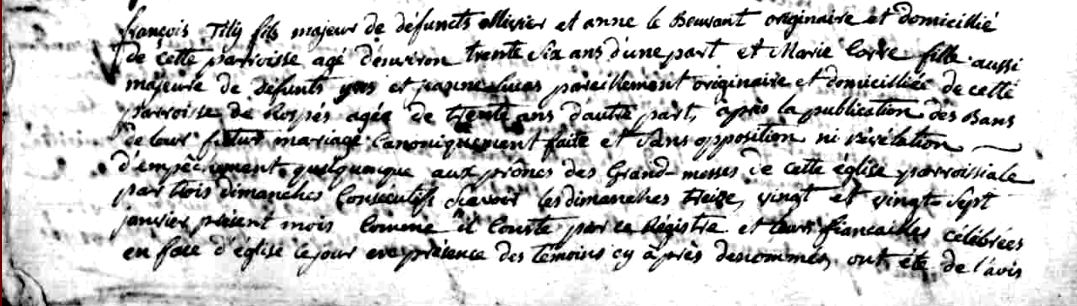 françois Tily fils majeur de défunts ollivier et anne le Beuvant originaire et domicilié
de cette parroisse agé d'environ trente Six ans d'une part et Marie Corre fille aussi
majeure de défunts yves et jeanne Lucas pareillement originaire et domiciliée de cette
parroisse de Rospés agée de trente ans d'autre part, après la publication des Bans
de leur futur mariage Canoniquement faite et Sans opposition ni révélation
d'empêchement quelquonque aux prônes des Grand-messes de cette église parroissiale
par trois dimanches Consecutifs Scavoir les dimanches treize, vingt et vingt-Sept
janvier présent mois Comme il Conste par ce Régistre et leurs fiancailles célébrées
en face d'église le jour en présence des témoins cy après denommés, ont été de l'avis